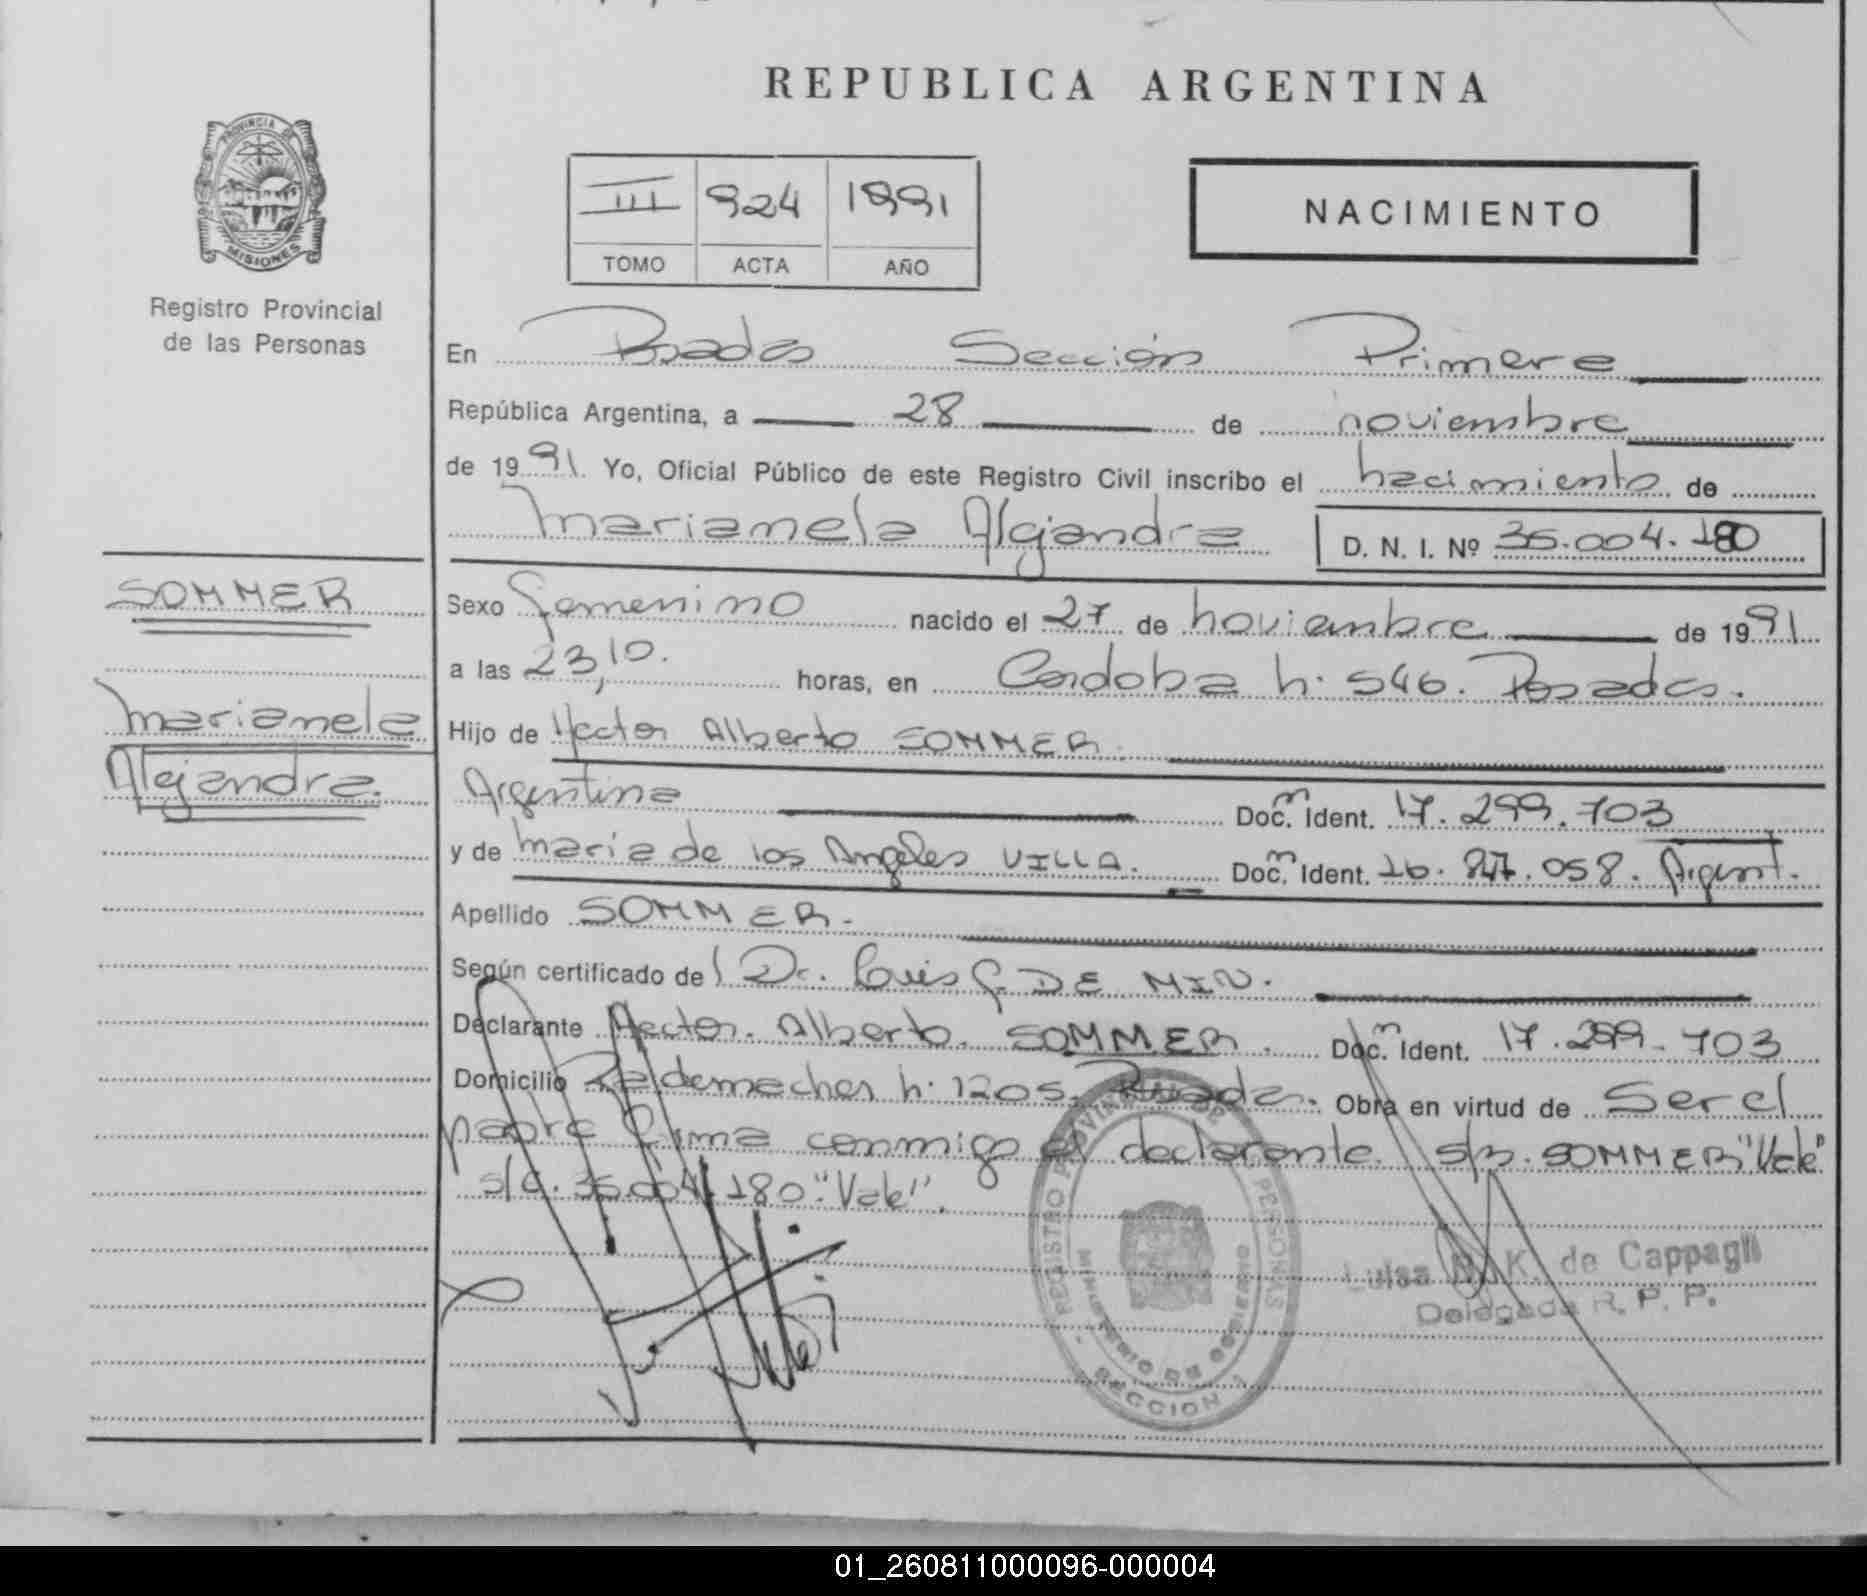 REPUBLICA ARGENTINA
PROVINCIA DE
MISIONES
Registro Provincial
de las Personas
III 924 1991
TOMO ACTA AÑO
NACIMIENTO
En Posadas Sección Primera
República Argentina, a 28 de noviembre
de 1991. Yo, Oficial Público de este Registro Civil inscribo el nacimiento de
Marianela Alejandra D. N. I. Nº 36.004.180
SOMMER
Marianela
Alejandra.
Sexo femenino nacido el 27 de noviembre de 1991
a las 23,10. horas, en Cordoba n: 546. Posadas.
Hijo de Hector Alberto SOMMER.
Argentina Doc. Ident. 17.299.703
y de Maria de los Angeles VILLA. Doc. Ident. 16.847.058. Argent.
Apellido SOMMER.
Según certificado de l Dr. Luis G. DE MIN.
Declarante Hector. Alberto. SOMMER. Doc. Ident. 17.299.703
Domicilio n: 1205. Posadas. Obra en virtud de Ser el
padre firma conmigo el declarante. s/b. SOMMER "Vale"
s/c. 36.004.180."Vale".
REGISTRO PROVINCIAL DE LAS PERSONAS
MINISTERIO DE GOBIERNO
SECCION 1
Luisa K. de Cappagli
Delegada R. P. P.
01_260811000096-000004